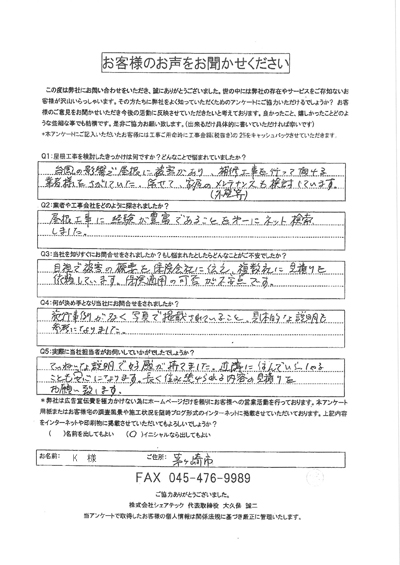 お客様のお声をお聞かせください
この度は弊社にお問い合わせをいただき、誠にありがとうございました。世の中には弊社の存在やサービスをご存知ないお
客様が沢山いらっしゃいます。その方たちに弊社をよく知っていただくためのアンケートにご協力いただけるでしょうか？ お客
様のご意見をお聞かせいただき今後の活動に反映させていただきたいと考えております。良かったこと、嬉しかったことどのよ
うな些細な事でも結構です。是非ご協力お願い致します。(出来るだけ具体的に書いていただければ幸いです)
*本アンケートにご記入いただいたお客様には工事ご用命時に工事金額(税抜き)の2%をキャッシュバックさせていただきます。
Q1:屋根工事を検討したきっかけは何ですか？どんなことで悩まれていましたか？
台風の影響で屋根に被害があり、補修工事を行って頂ける
業者様をさがしていた。併せて、家屋のメンテナンスも検討しています。
(外壁等)
Q2:業者や工事会社をどのように探されましたか？
屋根工事に経験が豊富であることを第一にネット検索
しました。
Q3:当社を知りすぐにお問合せをされましたか？もし悩まれたとしたらどんなことがご不安でしたか？
目視で被害の概要を保険会社に伝え、複数社に見積りを
依頼しています。保険適用の可否が不安です。
Q4:何が決め手となり当社にお問合せをされましたか？
施行事例が多く写真で掲載されていること、具体的な説明も
参考になりました。
Q5:実際に当社担当者がお伺いしていかがでしたでしょうか？
ていねいな説明で好感が持てました。近隣に住んでいらしゃる
ことも安心になります。長く住み続けられる内容の見積りを
お願い致します。
＊弊社は広告宣伝費を極力かけない為にホームページだけを頼りにお客様への営業活動を行っております。本アンケート
用紙またはお客様宅の調査風景や施工状況を随時ブログ形式のインターネットに掲載させていただいております。上記内容
をインターネットや印刷物に掲載させていただいてもよろしいでしょうか？
( )名前を出してもよい (○)イニシャルなら出してもよい
お名前: K 様 ご住所: 茅ヶ崎市
FAX 045-476-9989
ご協力ありがとうございました。
株式会社シェアテック 代表取締役 大久保 誠二
当アンケートで取得したお客様の個人情報は関係法規に基づき厳正に管理いたします。